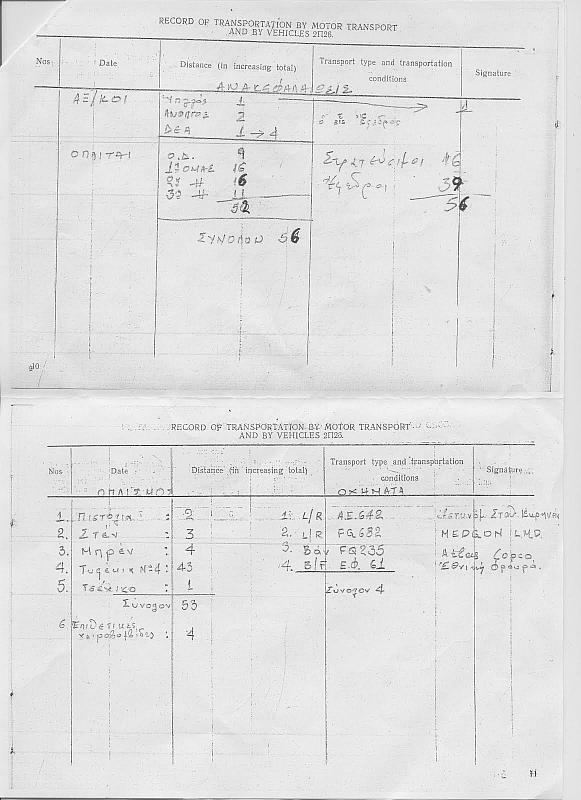 RECORD OF TRANSPORTATION BY MOTOR TRANSPORT
AND BY VEHICLES 2П26.
Nos Date Distance (in increasing total) Transport type and transportation conditions Signature
ΑΝΑΚΕΦΑΛΑΙΩΣΙΣ
ΑΞ/ΚΟΙ 1
ΑΝΘ/ΓΟΣ 2
ΔΕΑ 1 → 4
ΟΠΛΙΤΑΙ Ο.Δ. 9 Στρατεύσιμοι 16
1η ΟΜΑΣ 16 Έφεδροι 39
2α 〃 16
3η 〃 11 56
52
ΣΥΝΟΛΟΝ 56
10
RECORD OF TRANSPORTATION BY MOTOR TRANSPORT
AND BY VEHICLES 2П26.
Nos Date Distance (in increasing total) Transport type and transportation conditions Signature
ΟΠΛΙΣΜΟΣ ΟΧΗΜΑΤΑ
1. Πιστόλια : 2 1. L/R Α.Ε.642
2. Στεν : 3 2. L/R FG682 MEDCON L.M.D.
3. Μπρέν : 4 3. Βάν FQ235 Atlas Copco
4. Τυφέκια Νο4: 43 4. B/F Ε.Φ. 61 Εθνική Φρουρά.
5. Τσέκικο : 1 Σύνολον 4
Σύνολον 53
6 Επιθετικές
χειροβομβίδες : 4
11